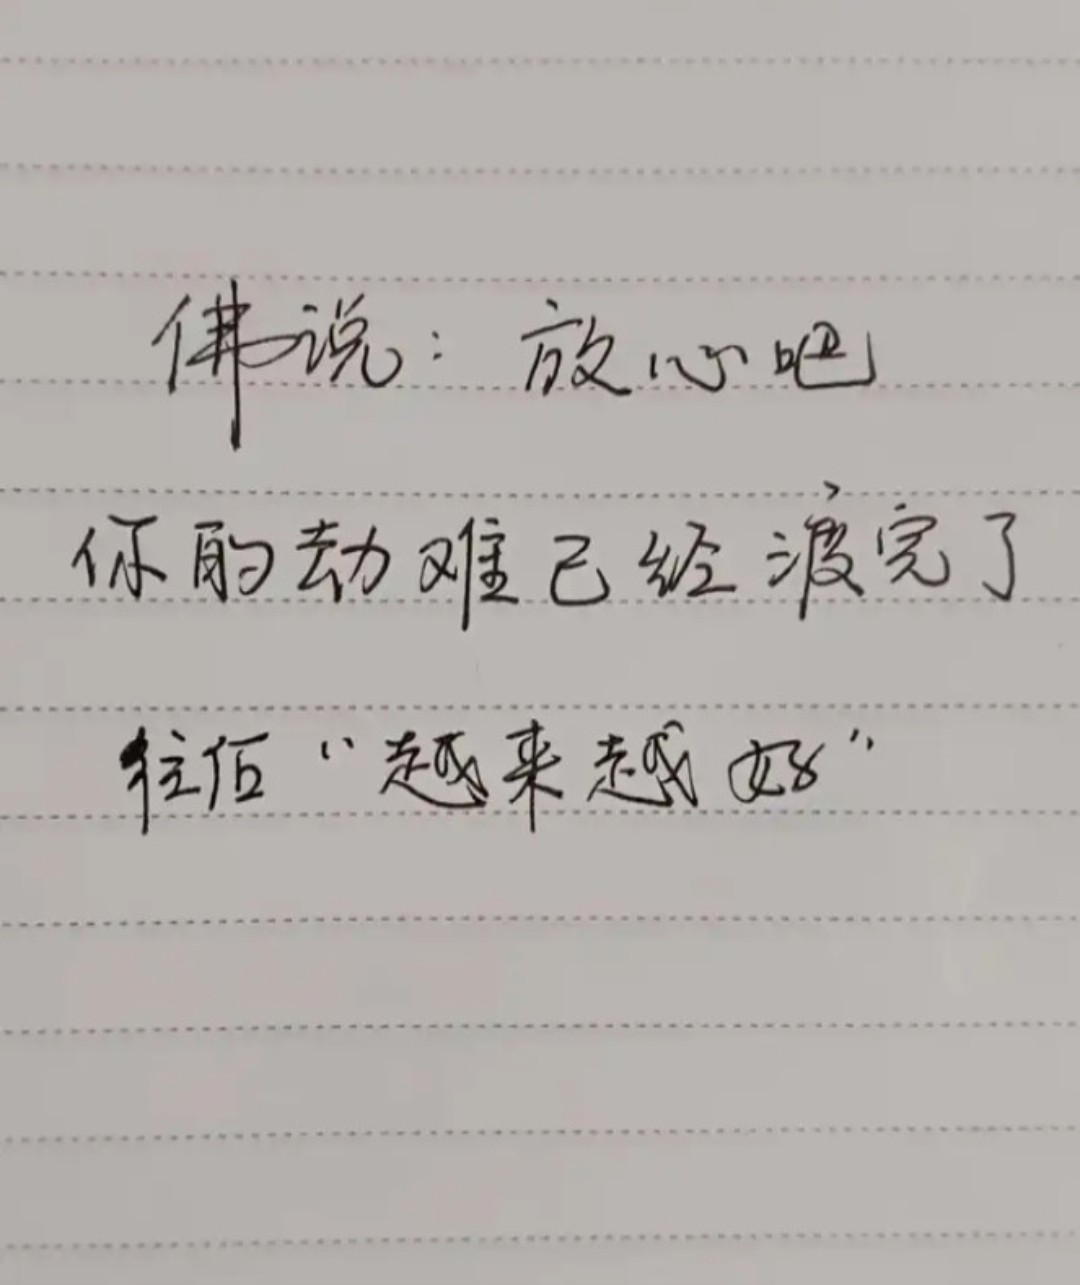 佛说：放心吧
你的劫难已经渡完了
往后“越来越好”